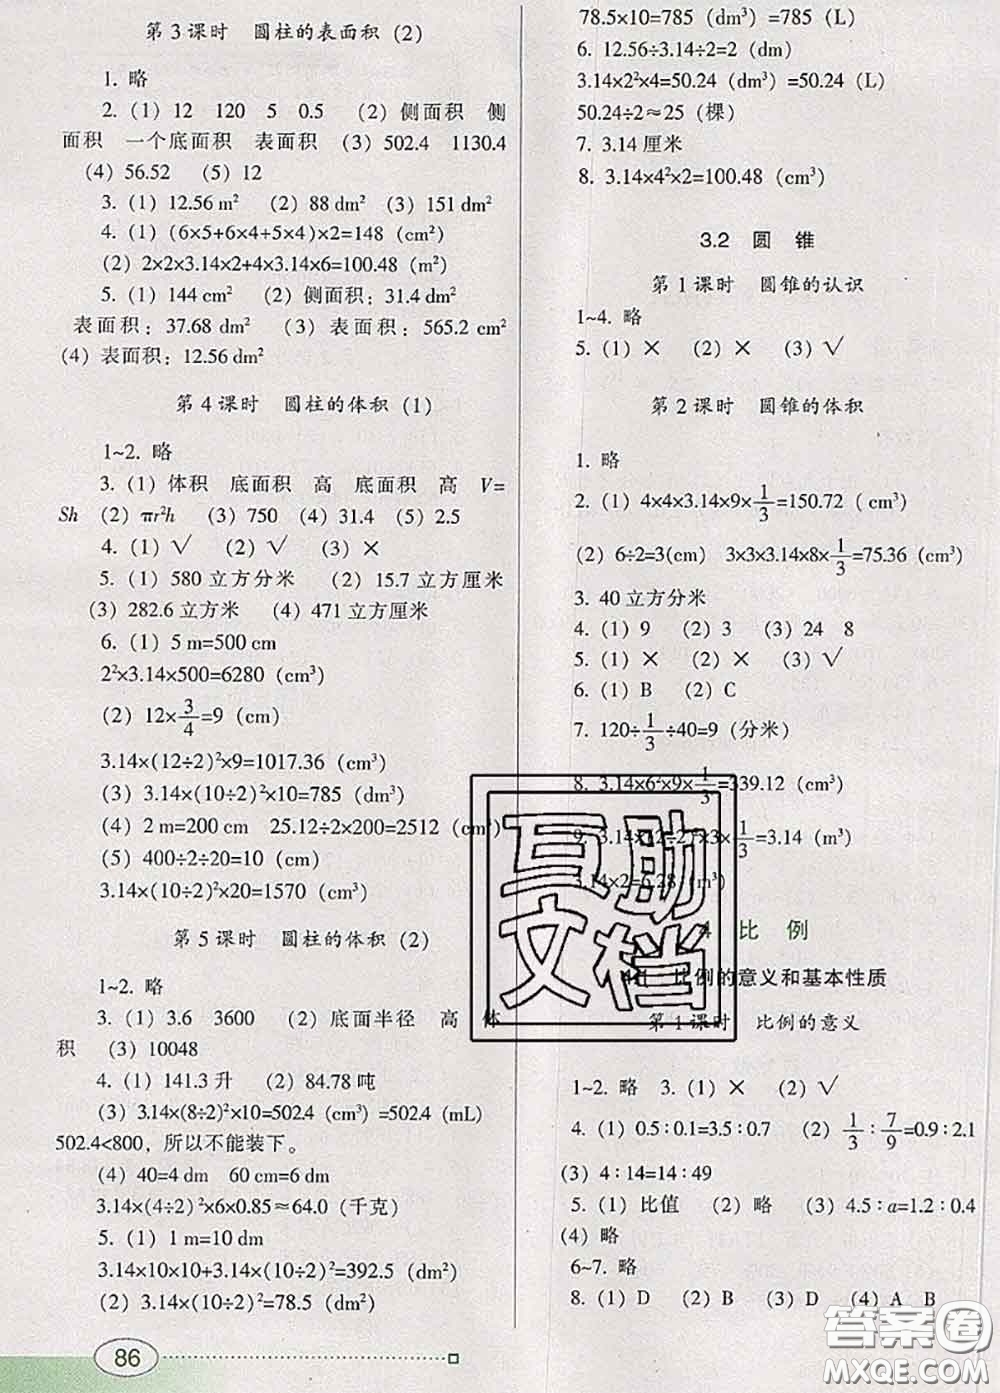 第3课时 圆柱的表面积(2)
1. 略
2. (1) 12 120 5 0.5 (2) 侧面积 侧
面积 一个底面积 表面积 (3) 502.4 1130.4
(4) 56.52 (5) 12
3. (1) 12.56 m² (2) 88 dm² (3) 151 dm²
4. (1) (6×5+6×4+5×4)×2=148 (cm²)
(2) 2×2×3.14×2+4×3.14×6=100.48 (m²)
5. (1) 144 cm² (2) 侧面积：31.4 dm²
表面积：37.68 dm² (3) 表面积：565.2 cm²
(4) 表面积：12.56 dm²
第4课时 圆柱的体积(1)
1~2. 略
3. (1) 体积 底面积 高 底面积 高 V=
Sh (2) πr²h (3) 750 (4) 31.4 (5) 2.5
4. (1) √ (2) √ (3) ×
5. (1) 580 立方分米 (2) 15.7 立方厘米
(3) 282.6 立方米 (4) 471 立方厘米
6. (1) 5 m=500 cm
2²×3.14×500=6280 (cm³)
(2) 12×3/4=9 (cm)
3.14×(12÷2)²×9=1017.36 (cm³)
(3) 3.14×(10÷2)²×10=785 (dm³)
(4) 2 m=200 cm 25.12÷2×200=2512 (cm³)
(5) 400÷2÷20=10 (cm)
3.14×(10÷2)²×20=1570 (cm³)
第5课时 圆柱的体积(2)
1~2. 略
3. (1) 3.6 3600 (2) 底面半径 高 体
积 (3) 10048
4. (1) 141.3 升 (2) 84.78 吨
(3) 3.14×(8÷2)²×10=502.4 (cm³) =502.4 (mL)
502.4<800，所以不能装下。
(4) 40=4 dm 60 cm=6 dm
3.14×(4÷2)²×6×0.85≈64.0 (千克)
5. (1) 1 m=10 dm
3.14×10×10+3.14×(10÷2)²=392.5 (dm²)
(2) 3.14×(10÷2)²=78.5 (dm²)
86
78.5×10=785 (dm³)=785 (L)
6. 12.56÷3.14÷2=2 (dm)
3.14×2²×4=50.24 (dm³) =50.24 (L)
50.24÷2≈25 (棵)
7. 3.14 厘米
8. 3.14×4²×2=100.48 (cm³)
3.2 圆 锥
第1课时 圆锥的认识
1~4. 略
5. (1) × (2) × (3) √
第2课时 圆锥的体积
1. 略
2. (1) 4×4×3.14×9×1/3=150.72 (cm³)
(2) 6÷2=3(cm) 3×3×3.14×8×1/3=75.36 (cm³)
3. 40 立方分米
4. (1) 9 (2) 3 (3) 24 8
5. (1) × (2) × (3) √
6. (1) B (2) C
7. 120÷1/3÷40=9 (分米)
8. 3.14×6²×9×1/3=339.12 (cm³)
9. 3.14×(2÷2)²×3×1/3=3.14 (m³)
3.14×2=6.28 (m³)
4 比 例
4.1 比例的意义和基本性质
第1课时 比例的意义
1~2. 略 3. (1) × (2) √
4. (1) 0.5∶0.1=3.5∶0.7 (2) 1/3∶7/9=0.9∶2.1
(3) 4∶14=14∶49
5. (1) 比值 (2) 略 (3) 4.5∶a=1.2∶0.4
(4) 略
6~7. 略
8. (1) D (2) B (3) D (4) A B
互助
文档
答案圈
MXQE.COM